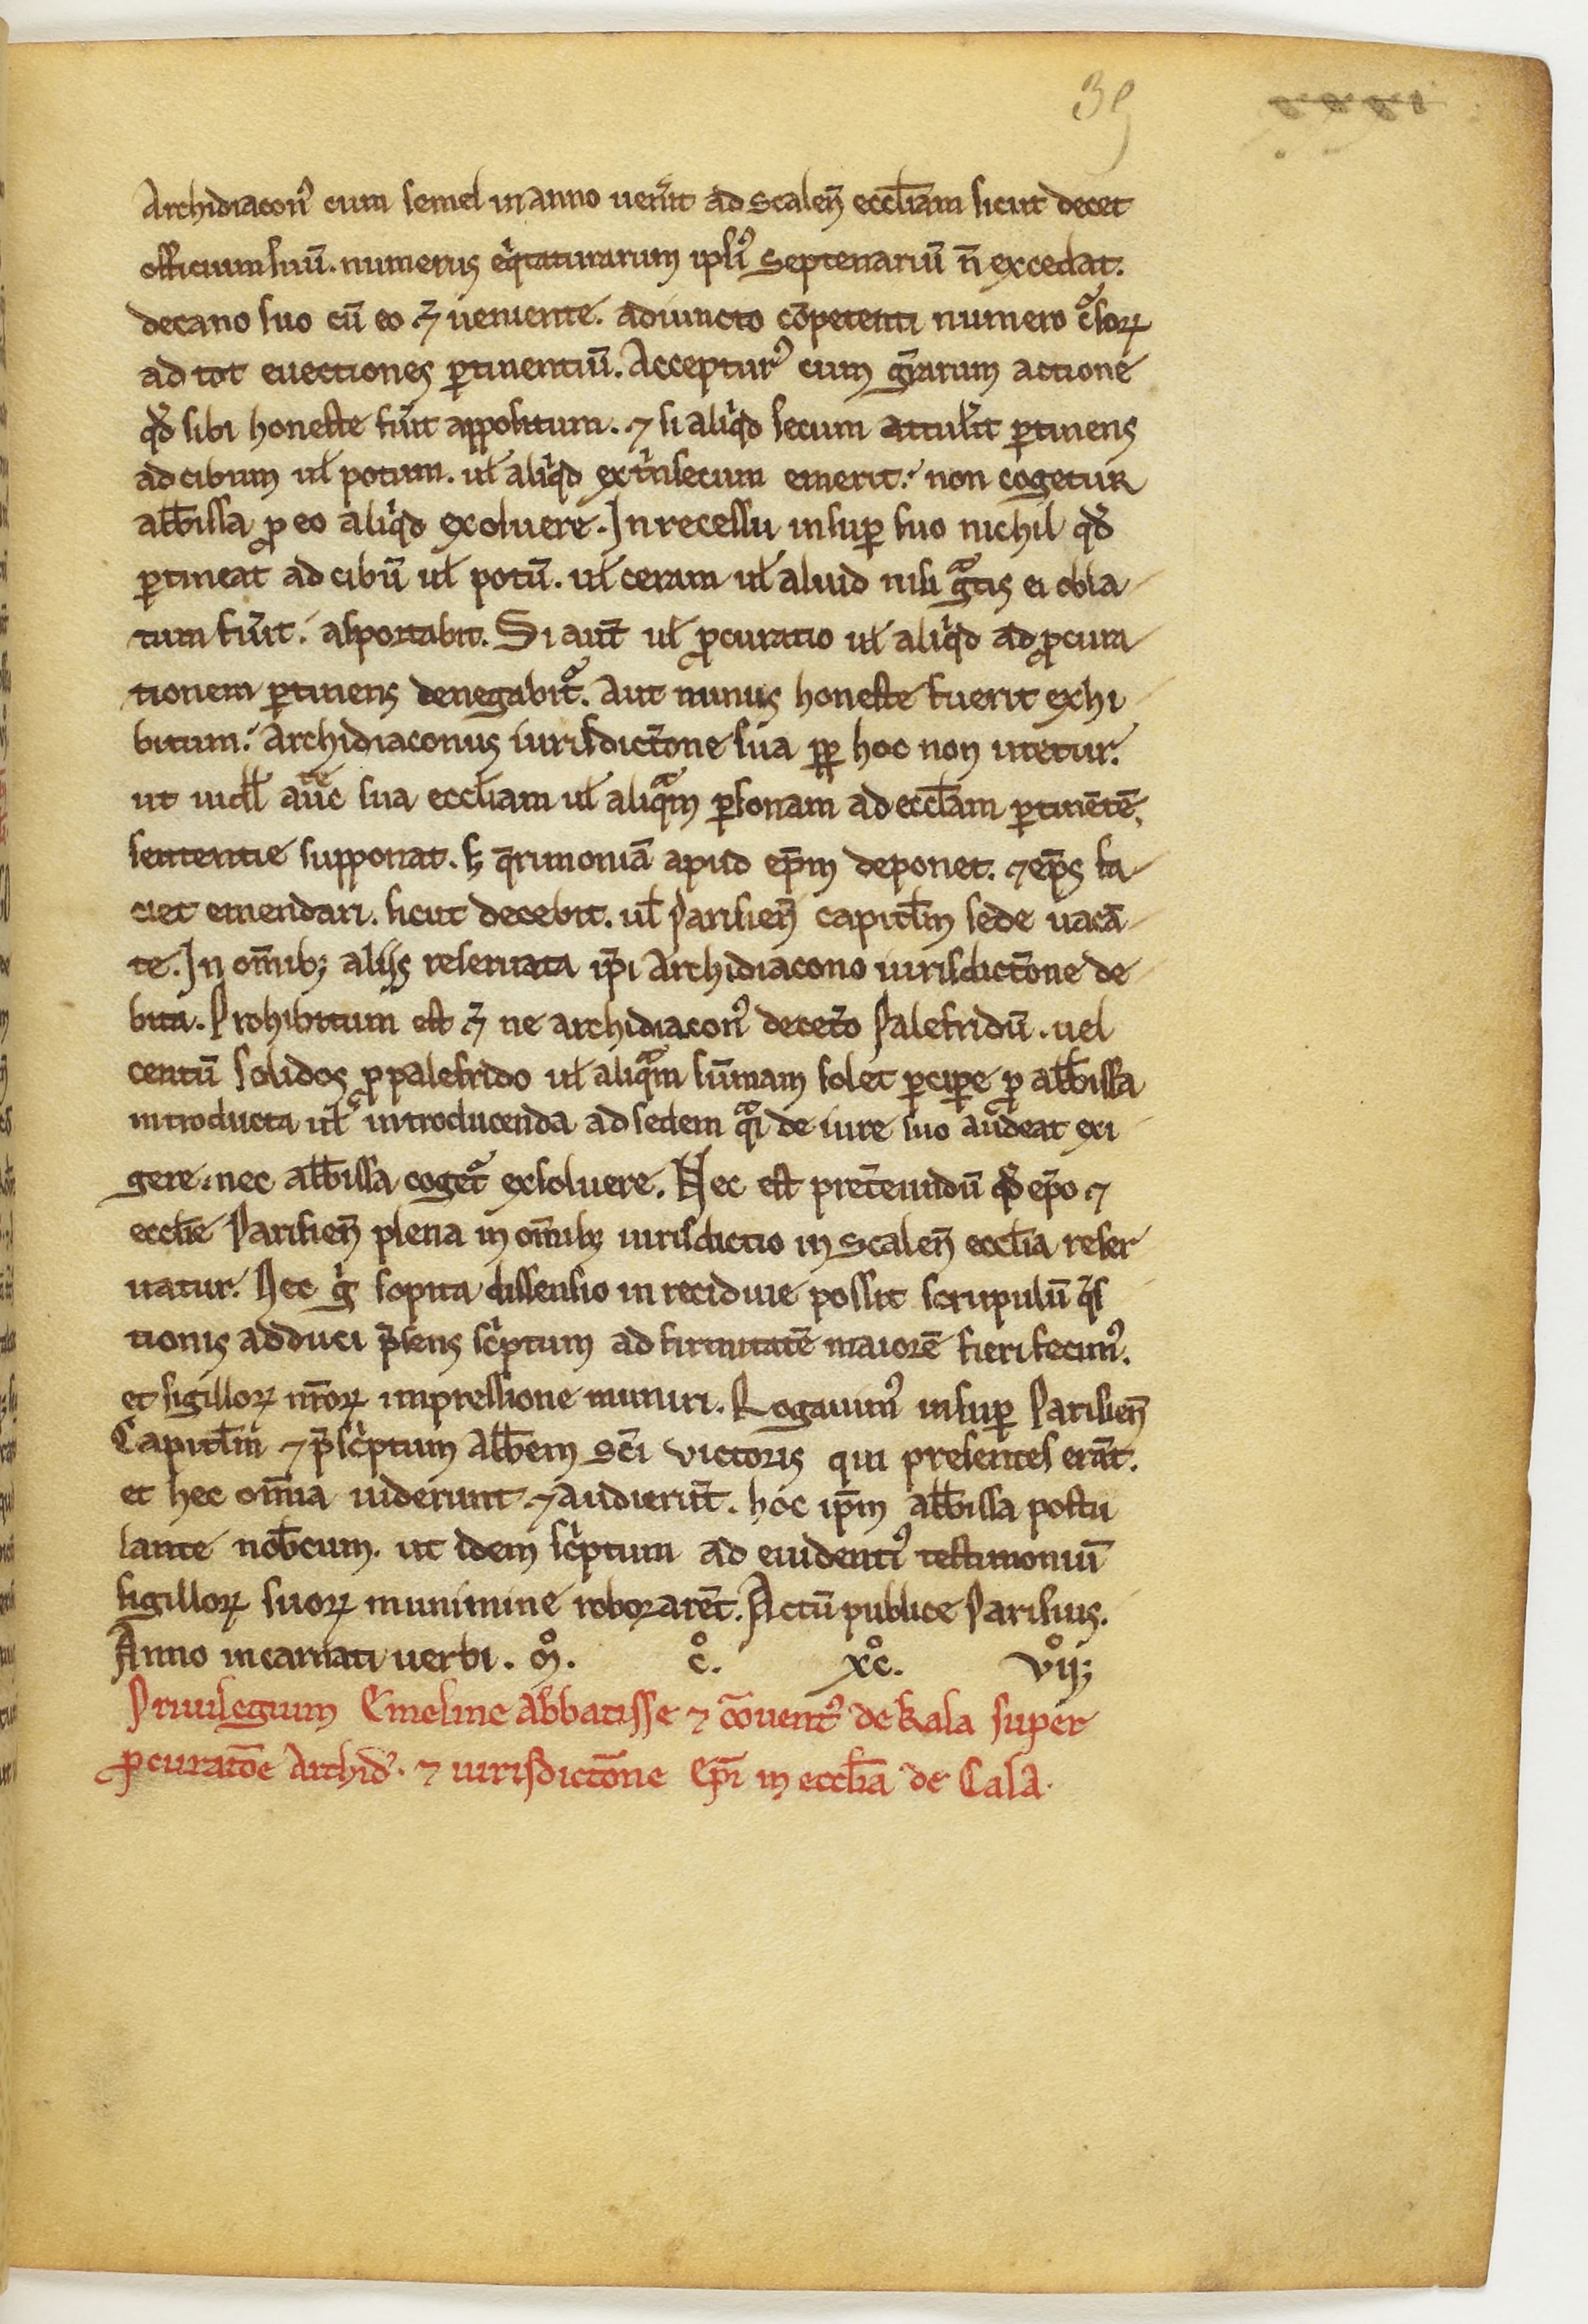 39
Archidiacon᾽ cum semel in anno uen̾it ad Scaleñ eccl̄iam sicut decet
officium suū. numerus eqͥtaturarum ipsi᾽ Septenariū n̄ excedat.
decano suo cū eo ⁊̄ ueniente. adiuncto cōpetenti numero cͬsoꝝ
ad tot euectiones ꝑtinentiū. Acceptur᾽ cum gr̄arum actione
qđ sibi honeste fu̾it appositum. ⁊ si aliqͥd secum attul̾it ꝑtinens
ad cibum ul̄ potum. ul̄ aliqͥd extͥnsecum emerit. non cogetur
abb̄issa ꝓ eo aliqͥd exoluere. In recessu insuꝑ suo nichil qđ
ꝑtineat ad cibū ul̄ potū. ul̄ ceram ul̄ aliud nisi gͣtis ei obla
tum fu̾it. asportabit. Si aut̄ ul̄ ꝓcuratio ul̄ aliqͥd ad ꝓcura
tionem ꝑtinens denegabit᷑. Aut minus honeste fuerit exhi
bitum. Archidiaconus iurisdict̄one sua ꝓꝑ hoc non utetur.
ut uidl̄ aūcte sua eccl̄iam ul̄ aliqͣm ꝑsonam ad eccl̄am ꝑtinētē,
sententie supponat. sꝫ q̄rimoniā apud ep̄m deponet. ⁊ ep̄s fa
ciet emendari. sicut decebit. ul̄ Parisieñ capitl̄m sede uacā
te. In om̄ibꝫ aliis reseruata ip̄i Archidiacono iurisdict̄one de
bita. Prohibitum est ⁊̄ ne archidiacon᾽ decet̾o Palefridū. uel
centū solidos ꝓ palefrido ul̄ aliqͣm sūmam solet ꝑciꝑe ꝓ abb̄issa
introducta ul̄ introducenda ad sedem qͣi de iure suo audeat exi
gere. nec abb̄issa coget᷑ exsoluere. Nec est pret̾eundū qđ ep̄o ⁊
eccl̄ie Parisieñ plena in om̄ibꝫ iurisdictio in Scaleñ eccl̄ia reser
uatur. Nec gͥ sopita dissensio in recidiue possit scrupulū q̄s
tionis adduci p̄sens scͥptum ad firmitatē maiorē fieri fecim᾽.
et sigilloꝝ nr̄oꝝ impressione muniri. Rogauim᾽ insuꝑ Parisieñ
Capitl̄m ⁊ p̄scͥptum Abb̄em Sc̄i Victoris qui presentes erāt.
et hec om̄ia uiderunt ⁊ Audierūt. hoc ip̄m abb̄issa postu
lante nob̄cum. ut idem scͥptum ad euidenti᾽ testimoniū
sigilloꝝ suoꝝ munimine roborarēt. Actū publice Parisius.
Anno incarnati uerbi. M̊. c̊. xc̊. vij̊
Priuilegium Emeline Abbatisse ⁊ cōuent᾽ de Kala super
ꝓcurat̄oe Archid̄. ⁊ iurisdict̄one Ep̄i in eccl̄ia de Cala.